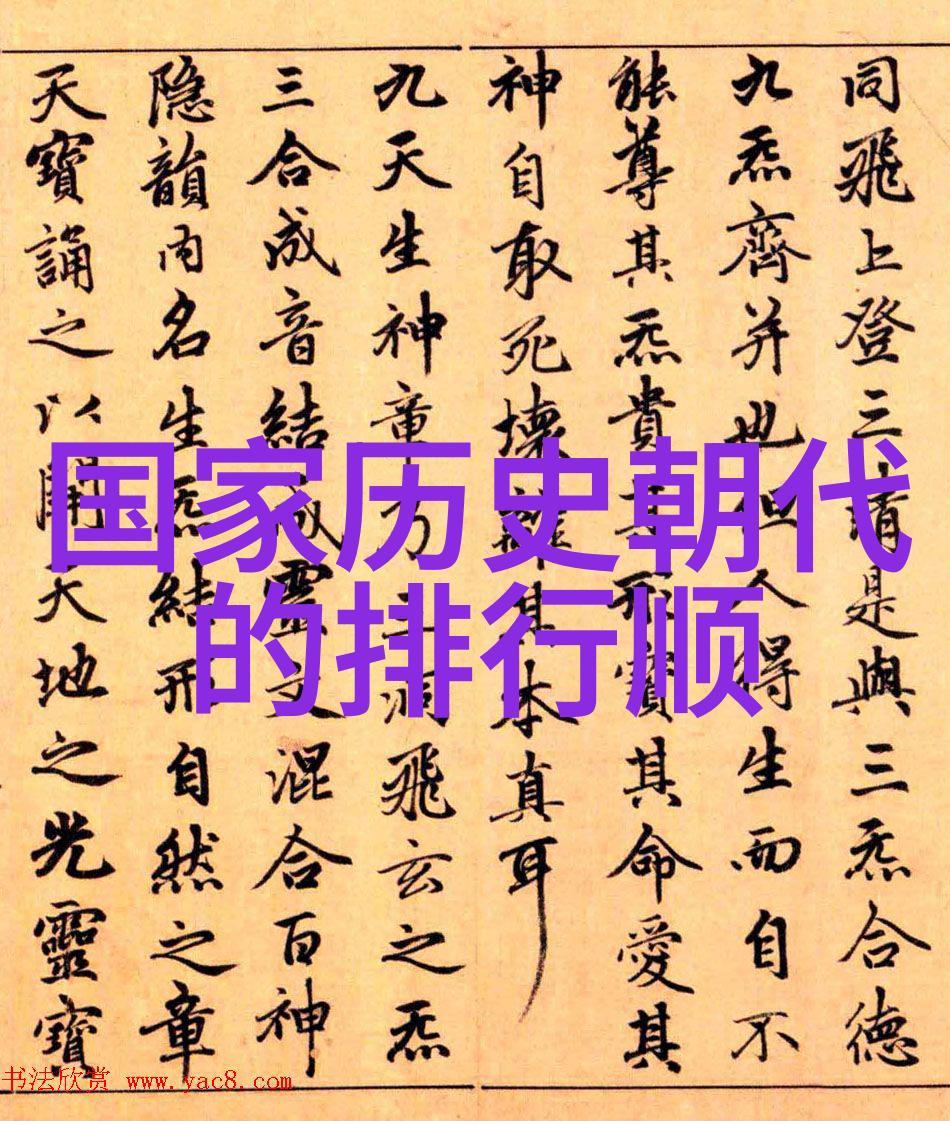 同飛上登三清是與三炁合德
九炁齊并也但人得生而自不
能尊其炁貴其形寶其命愛其
神自取死壞離其本真耳
九天生神章乃三洞飛玄之炁
三合成音結成靈文混合百神
隐韻内名生炁結形自然之章
天寶誦之以開天地之光靈寶
国家历史朝代
的排行顺
书法欣赏 www.yac8.com